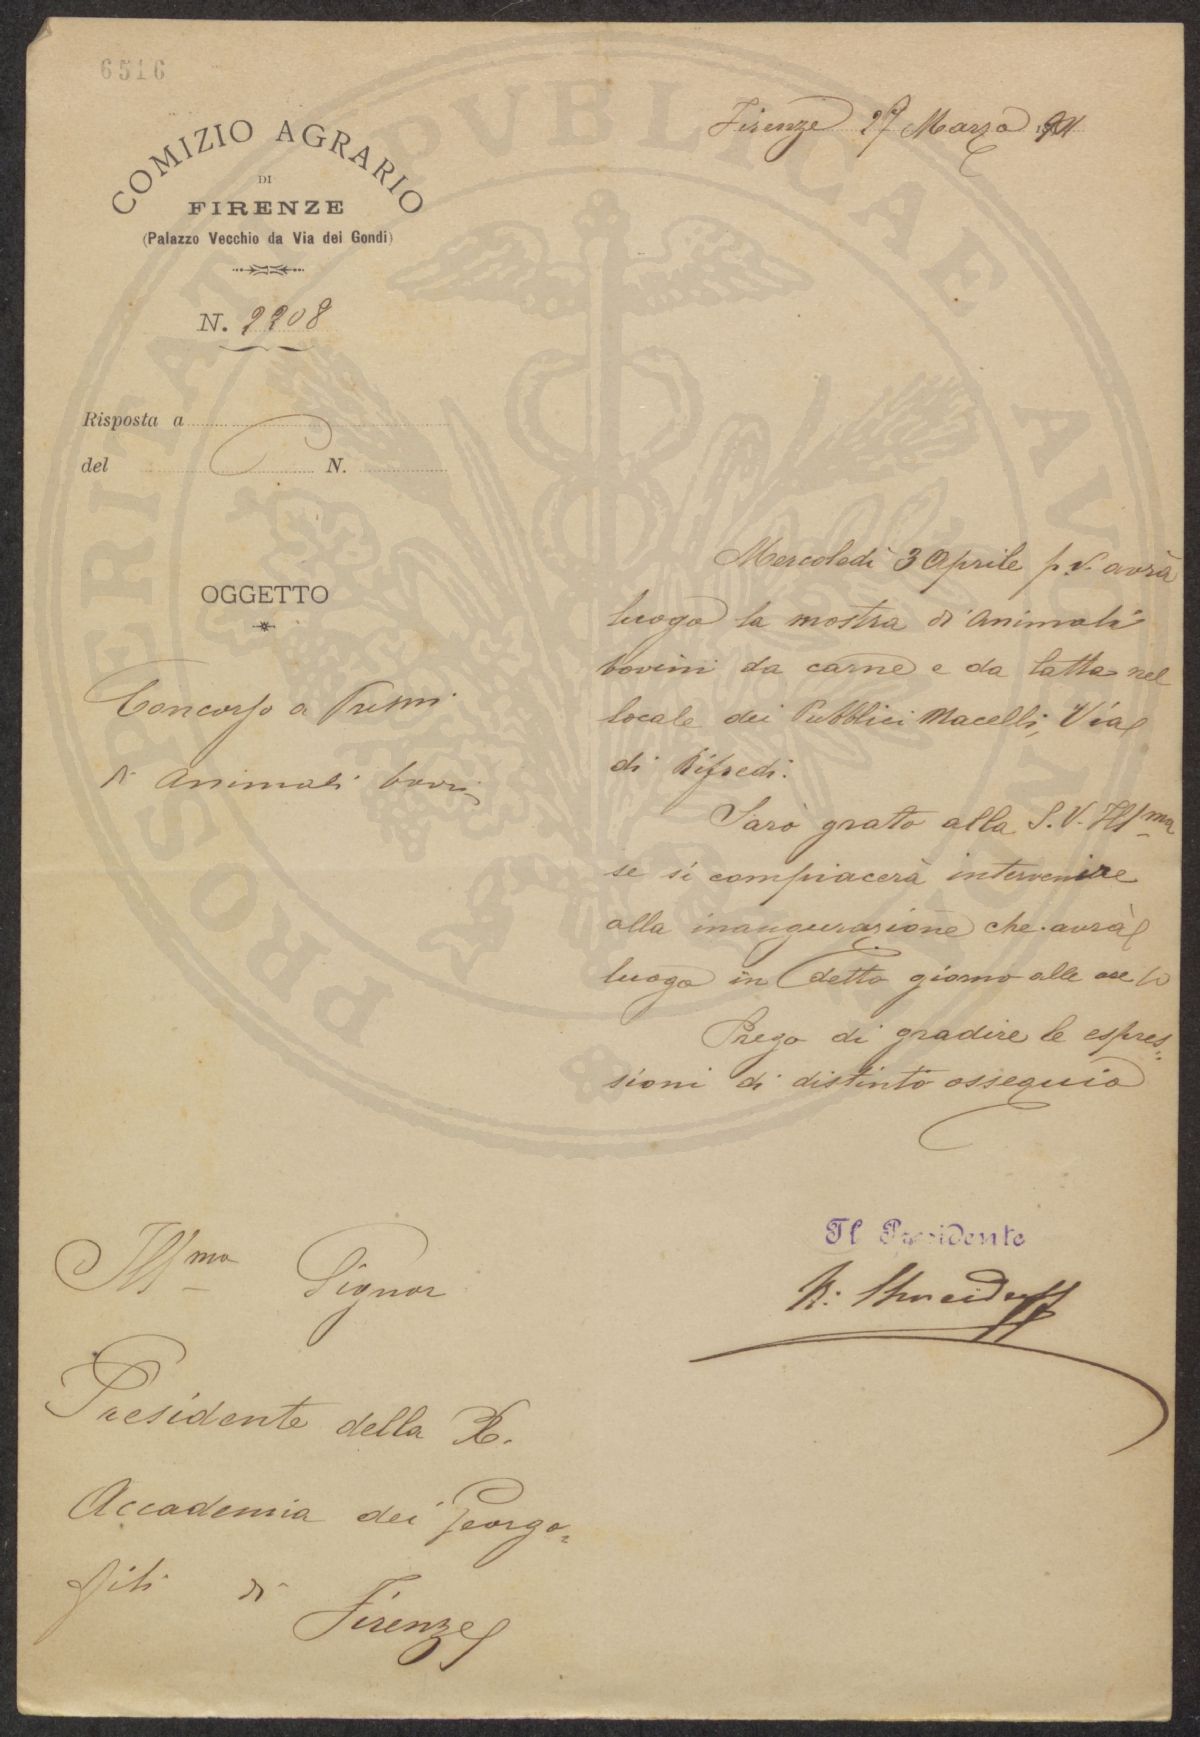 6516
COMIZIO AGRARIO
DI
FIRENZE
(Palazzo Vecchio da Via dei Gondi)
N. 2208
Risposta a
del N.
OGGETTO
Concorso a Premi
di animali bovi-
Firenze 27 Marzo
Mercoledì 3 Aprile p.v. avrà
luogo la mostra di animali
bovini da carne e da latte nel
locale dei Pubblici Macelli, Via
di Rifredi.
Sarò grato alla S. V. Illma
se si compiacerà intervenire
alla inaugurazione che avrà
luogo in detto giorno alle ore 10
Prego di gradire le espres=
sioni di distinto ossequio
Il Presidente
Illmo Signor
Presidente della R.
Accademia dei Georgo=
fili di
Firenze
PROSPERITATI PVBLICAE AVGENDAE